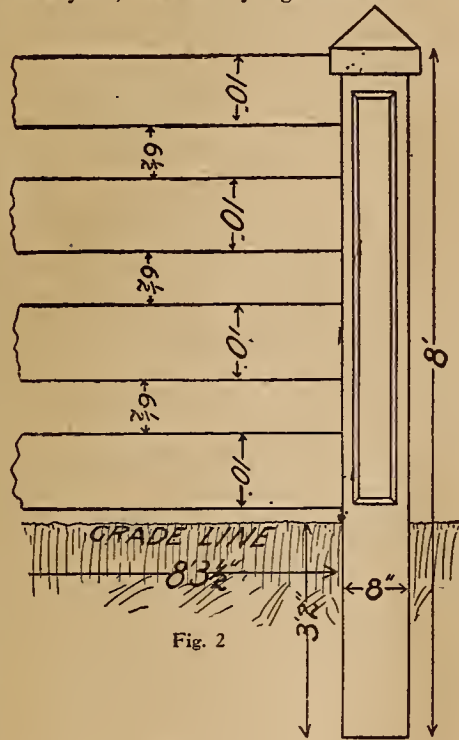 10"
6½
10"
6½
10"
8'
6½
10"
GRADE LINE
8'3½"
8"
3'2"
Fig. 2